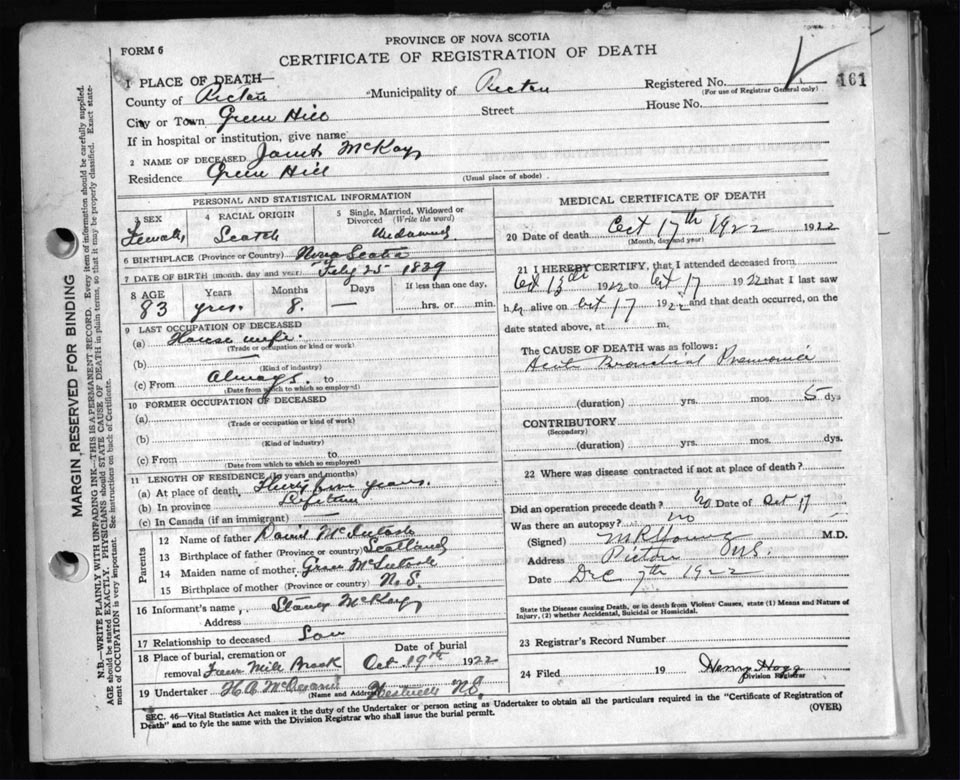 PROVINCE OF NOVA SCOTIA
FORM 6
CERTIFICATE OF REGISTRATION OF DEATH
161
1 PLACE OF DEATH—
County of Pictou Municipality of Pictou Registered No.
(For use of Registrar General only)
City or Town Green Hill Street House No.
If in hospital or institution, give name
2 NAME OF DECEASED Janet McKay
Residence Green Hill
(Usual place of abode)
PERSONAL AND STATISTICAL INFORMATION
3 SEX 4 RACIAL ORIGIN 5 Single, Married, Widowed or Divorced (Write the word)
Female Scotch Widowed
6 BIRTHPLACE (Province or Country) Nova Scotia
7 DATE OF BIRTH (month, day and year) Feby 25 1839
8 AGE Years Months Days If less than one day,
83 yrs. 8. — hrs. or min.
9 LAST OCCUPATION OF DECEASED
(a) House wife.
(Trade or occupation or kind of work)
(b) —
(Kind of industry)
(c) From Always. to
(Date from which to which so employed)
10 FORMER OCCUPATION OF DECEASED
(a)
(Trade or occupation or kind of work)
(b)
(Kind of industry)
(c) From to
(Date from which to which so employed)
11 LENGTH OF RESIDENCE (In years and months)
(a) At place of death Thirty years.
(b) In province Lifetime
(c) In Canada (if an immigrant) —
Parents
12 Name of father David McIntosh
13 Birthplace of father (Province or country) Scotland
14 Maiden name of mother McIntosh
15 Birthplace of mother (Province or country) N.S.
16 Informant's name McKay
Address
17 Relationship to deceased Son
18 Place of burial, cremation or removal Mile Brook
Date of burial
Oct 19th 1922
19 Undertaker H.A.
(Name and Address) N.S.
MEDICAL CERTIFICATE OF DEATH
20 Date of death Oct 17th 1922 1922
(Month, day and year)
21 I HEREBY CERTIFY, that I attended deceased from
Oct 13th 1922 to Oct 17 1922 that I last saw
her alive on Oct 17 1922 and that death occurred, on the
date stated above, at m.
The CAUSE OF DEATH was as follows:
Acute Bronchial Pneumonia
(duration) yrs. mos. 5 dys
CONTRIBUTORY
(Secondary)
(duration) yrs. mos. dys.
22 Where was disease contracted if not at place of death?
Did an operation precede death? no Date of Oct 17
Was there an autopsy? no
(Signed) M R Young M.D.
Address Pictou N.S.
Date Dec 7th 1922
State the Disease causing Death, or in death from Violent Causes, state (1) Means and Nature of
Injury, (2) whether Accidental, Suicidal or Homicidal.
23 Registrar's Record Number
24 Filed 19 Henry Hogg
Division Registrar
SEC. 46—Vital Statistics Act makes it the duty of the Undertaker or person acting as Undertaker to obtain all the particulars required in the "Certificate of Registration of
Death" and to fyle the same with the Division Registrar who shall issue the burial permit.
(OVER)
MARGIN RESERVED FOR BINDING
N.B.—WRITE PLAINLY WITH UNFADING INK—THIS IS A PERMANENT RECORD. Every item of information should be carefully supplied.
AGE should be stated EXACTLY. PHYSICIANS should STATE CAUSE OF DEATH in plain terms, so that it may be properly classified. Exact state-
ment of OCCUPATION is very important. See instructions on back of Certificate.